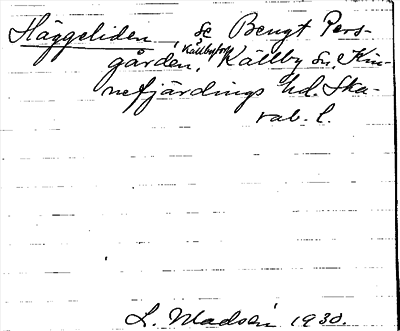 Häggeliden, se Bengt Pers-
gården, Källby sn. Kin-
nefjärdings hd. Ska-
rab. l.
L. Madsén 1930.